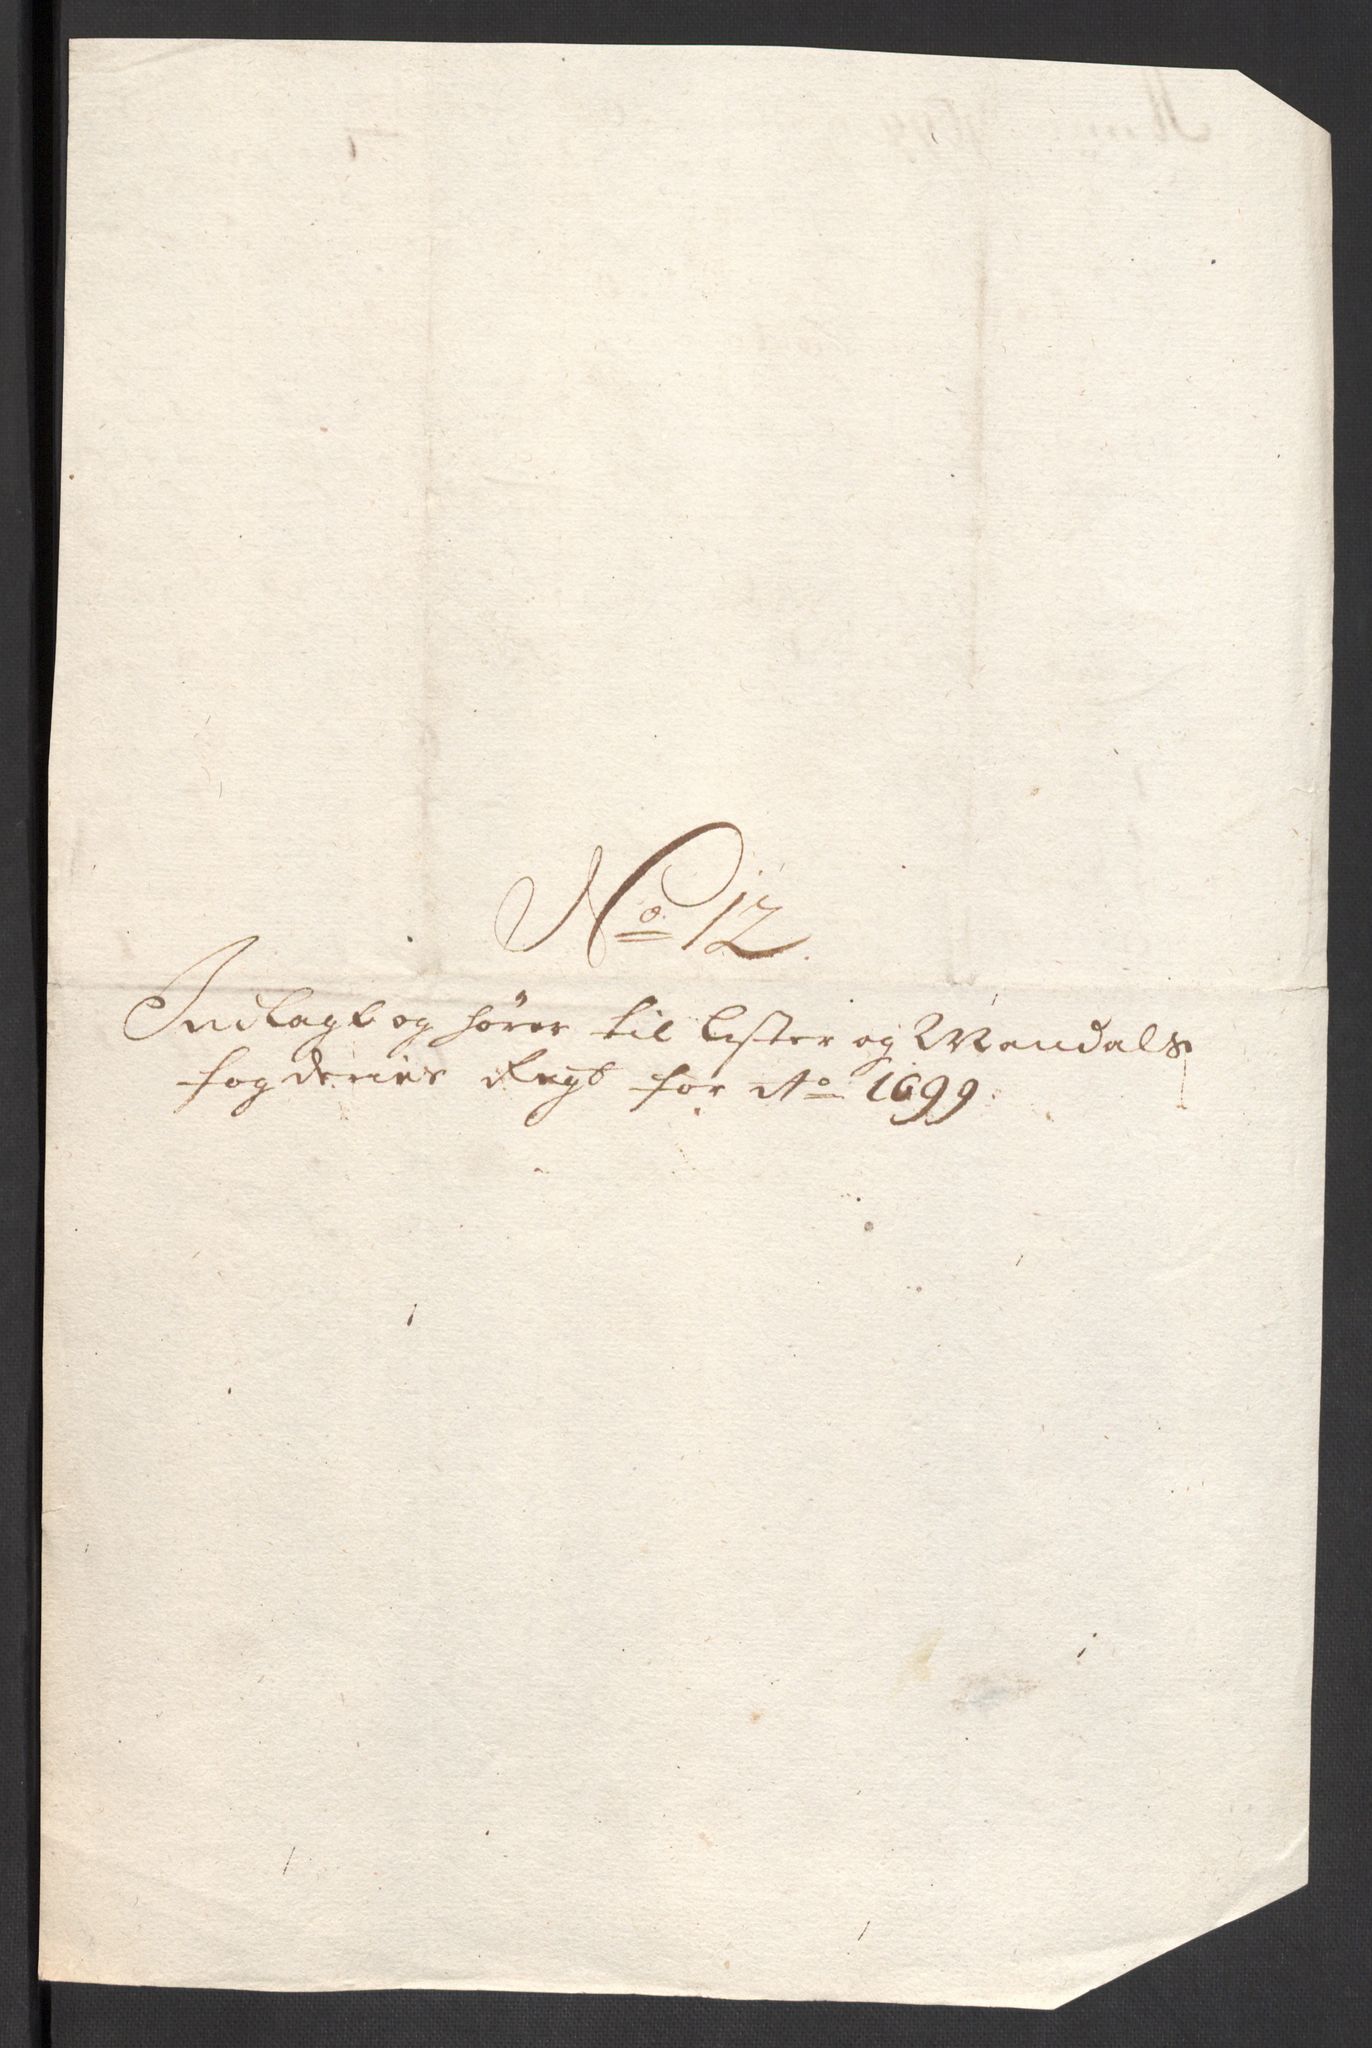 No 12.
Indlagt og hörer til Lister og Mandals
fogderies Regb for Ao 1699.